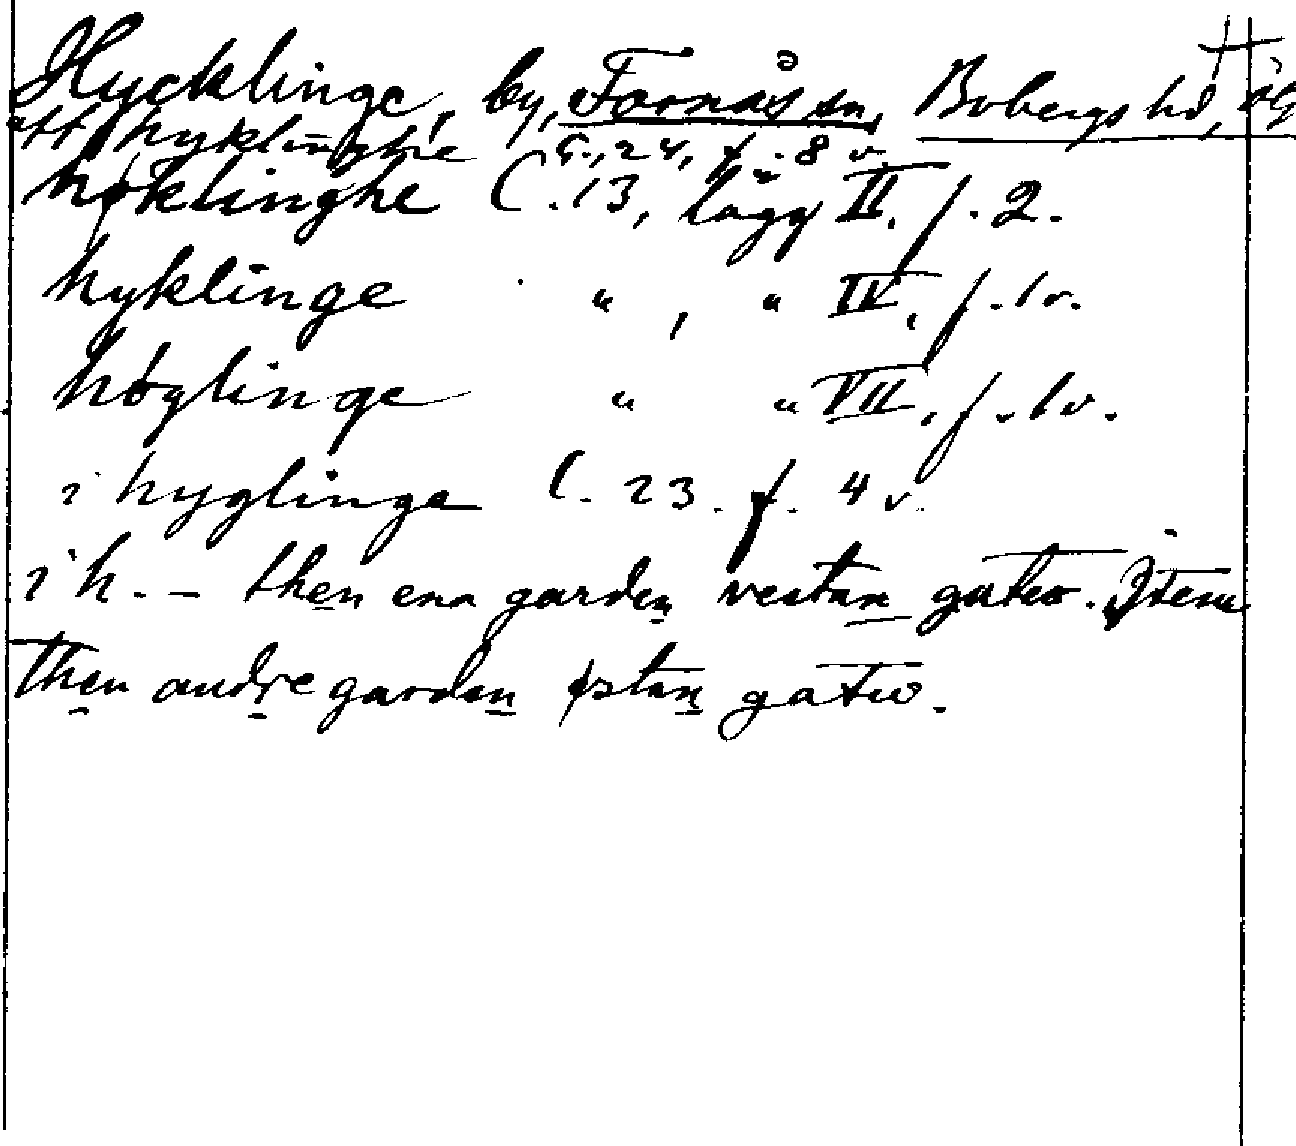 Hycklinge, by, Fornåsa sn, Bobergs hd, Ög
att hyklinghe C. 24, f. 8 v.
høklinghe C. 13, lägg II, f. 2.
hyklinge " , " IV, f. 1 v.
höglinge " " VII, f. 1 v.
i hyglinge C. 23. f. 4 v.
i h. – then ena garden vestan gatw. Jtem
then andre garden østan gatw.